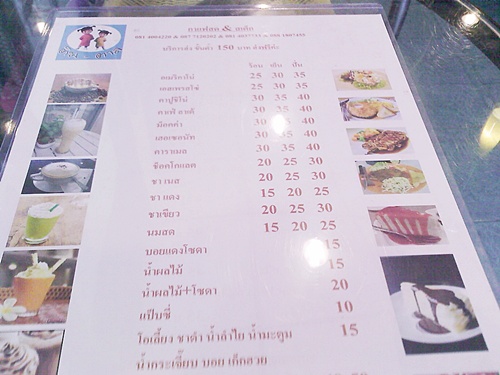 กาแฟสด & สเต็ก
บริการส่ง ขั้นต่ำ 150 บาท ส่งฟรีค่ะ
ร้อน เย็น ปั่น
อเมริกาโน่ 25 30 35
เอสเพรสโซ่ 25 30 35
คาปูชิโน่ 30 35 40
คาเฟ่ ลาเต้ 30 35 40
ม็อคค่า 30 35 40
เฮเซลนัท 30 35 40
คาราเมล 30 35 40
ช็อคโกแลต 20 25 30
ชา เนส 20 25 30
ชา แดง 15 20 25
ชาเขียว 20 25 30
นมสด 15 20 25
บอยแดงโซดา 15
น้ำผลไม้ 15
น้ำผลไม้+โซดา 20
แป๊บซี่ 10
โอเลี้ยง ชาดำ น้ำลำไย น้ำมะตูม 15
น้ำกระเจี๊ยบ บอย เก็กฮวย